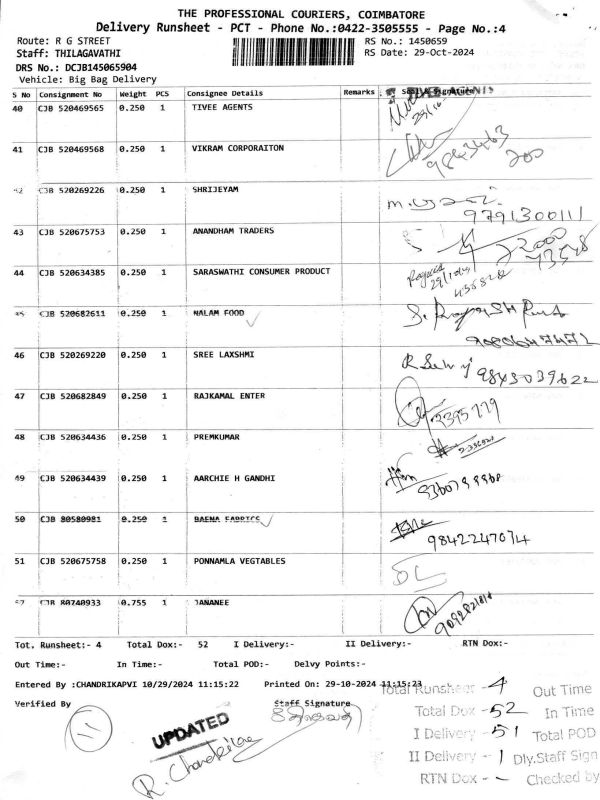 THE PROFESSIONAL COURIERS, COIMBATORE
Delivery Runsheet - PCT - Phone No.:0422-3505555 - Page No.:4
Route: R G STREET RS No.: 1450659
Staff: THILAGAVATHI RS Date: 29-Oct-2024
DRS No.: DCJB145065904
Vehicle: Big Bag Delivery
S No Consignment No Weight PCS Consignee Details Remarks Seal & Signature
40 CJB 520469565 0.250 1 TIVEE AGENTS
41 CJB 520469568 0.250 1 VIKRAM CORPORAITON
200
52 CJB 520269226 0.250 1 SHRIJEYAM
9791300111
43 CJB 520675753 0.250 1 ANANDHAM TRADERS
22000
73548
44 CJB 520634385 0.250 1 SARASWATHI CONSUMER PRODUCT
45 CJB 520682611 0.250 1 NALAM FOOD
46 CJB 520269220 0.250 1 SREE LAXSHMI R Selvi
9843039622
47 CJB 520682849 0.250 1 RAJKAMAL ENTER
2395779
48 CJB 520634436 0.250 1 PREMKUMAR
49 CJB 520634439 0.250 1 AARCHIE H GANDHI
50 CJB 80580981 0.250 1 BAENA FABRICS
9842247074
51 CJB 520675758 0.250 1 PONNAMLA VEGTABLES
57 CJB 80740933 0.755 1 JANANEE
Tot. Runsheet:- 4 Total Dox:- 52 I Delivery:- II Delivery:- RTN Dox:-
Out Time:- In Time:- Total POD:- Delvy Points:-
Entered By :CHANDRIKAPVI 10/29/2024 11:15:22 Printed On: 29-10-2024 11:15:23
Verified By Staff Signature
11
UPDATED
R. Chandrika
Total Runsheet - 4 Out Time
Total Dox - 52 In Time
I Delivery - 51 Total POD
II Delivery - 1 Dly.Staff Sign
RTN Dox - - Checked by